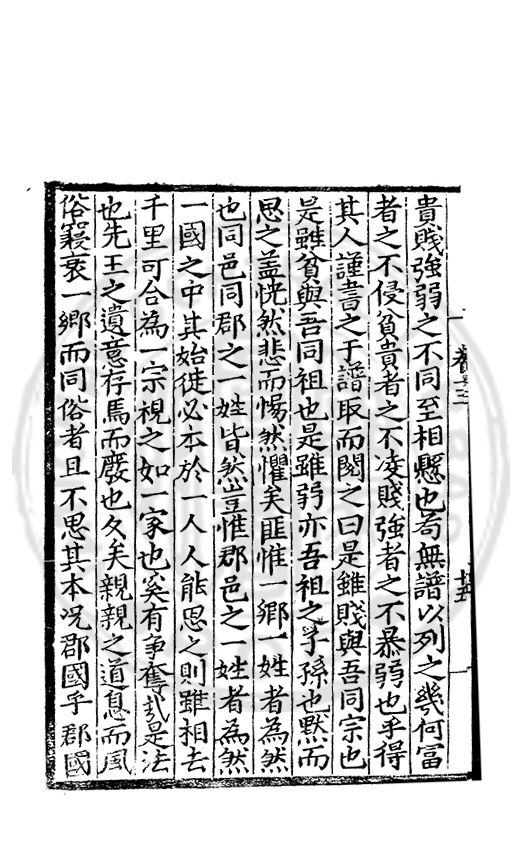 貴賤強弱之不同至相懸也苟無譜以列之幾何富
者之不侵貧貴者之不凌賤強者之不暴弱也乎得
其人謹書之于譜取而閱之曰是雖賤與吾同宗也
是雖貧與吾同祖也是雖弱亦吾祖之子孫也黙而
思之盖恍然悲而惕然懼矣匪惟一鄉一姓者為然
也同邑同郡之一姓皆然豈惟郡邑之一姓者為然
一國之中其始徒必本於一人人能思之則雖相去
千里可合為一宗視之如一家也奚有争奪哉是法
也先王之遺意存焉而廢也久矣親親之道息而風
俗寖衰一鄉而同俗者且不思其本况郡國乎郡國